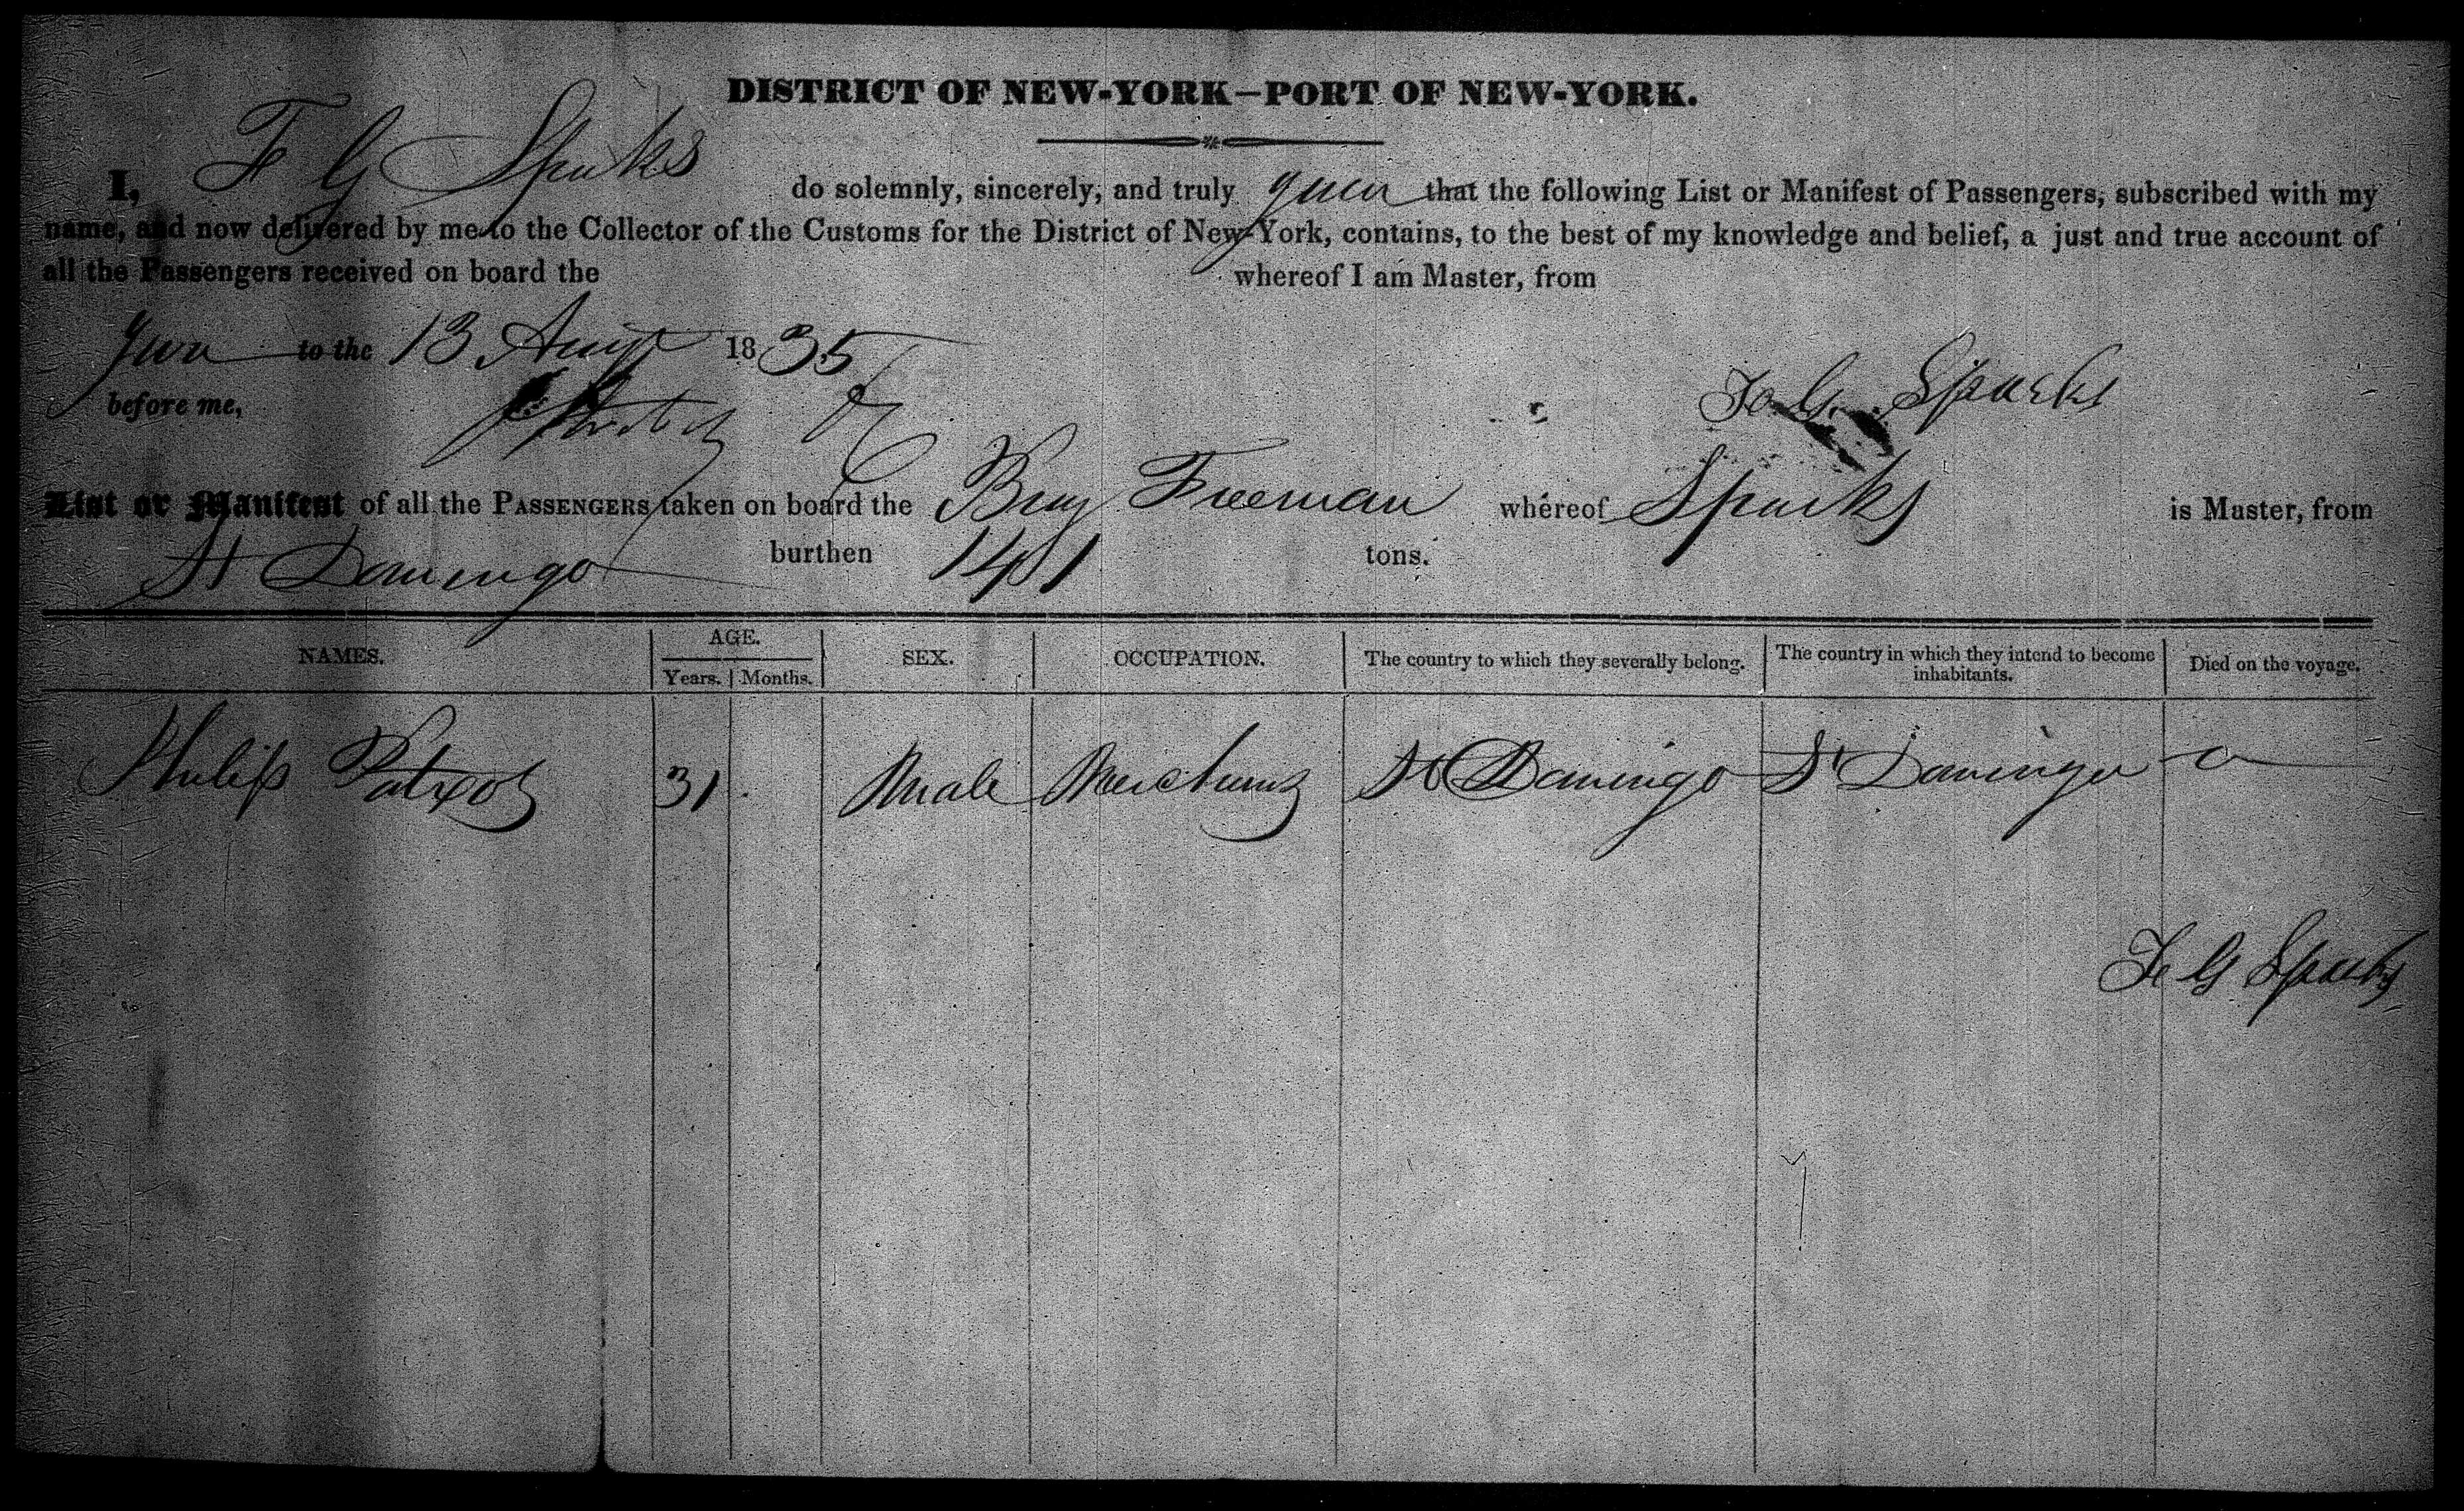 DISTRICT OF NEW-YORK—PORT OF NEW-YORK.
I, F G Sparks do solemnly, sincerely, and truly swear that the following List or Manifest of Passengers, subscribed with my
name, and now delivered by me to the Collector of the Customs for the District of New-York, contains, to the best of my knowledge and belief, a just and true account of
all the Passengers received on board the whereof I am Master, from
Sworn to the 13 Augt 1835
before me,
F G Sparks
List or Manifest of all the PASSENGERS taken on board the Brig Freeman whereof Sparks is Master, from
St Domingo burthen 141 tons.
NAMES. AGE. Years. Months. SEX. OCCUPATION. The country to which they severally belong. The country in which they intend to become inhabitants. Died on the voyage.
Philip 31 Male Merchant St Domingo St Domingo
F G Sparks